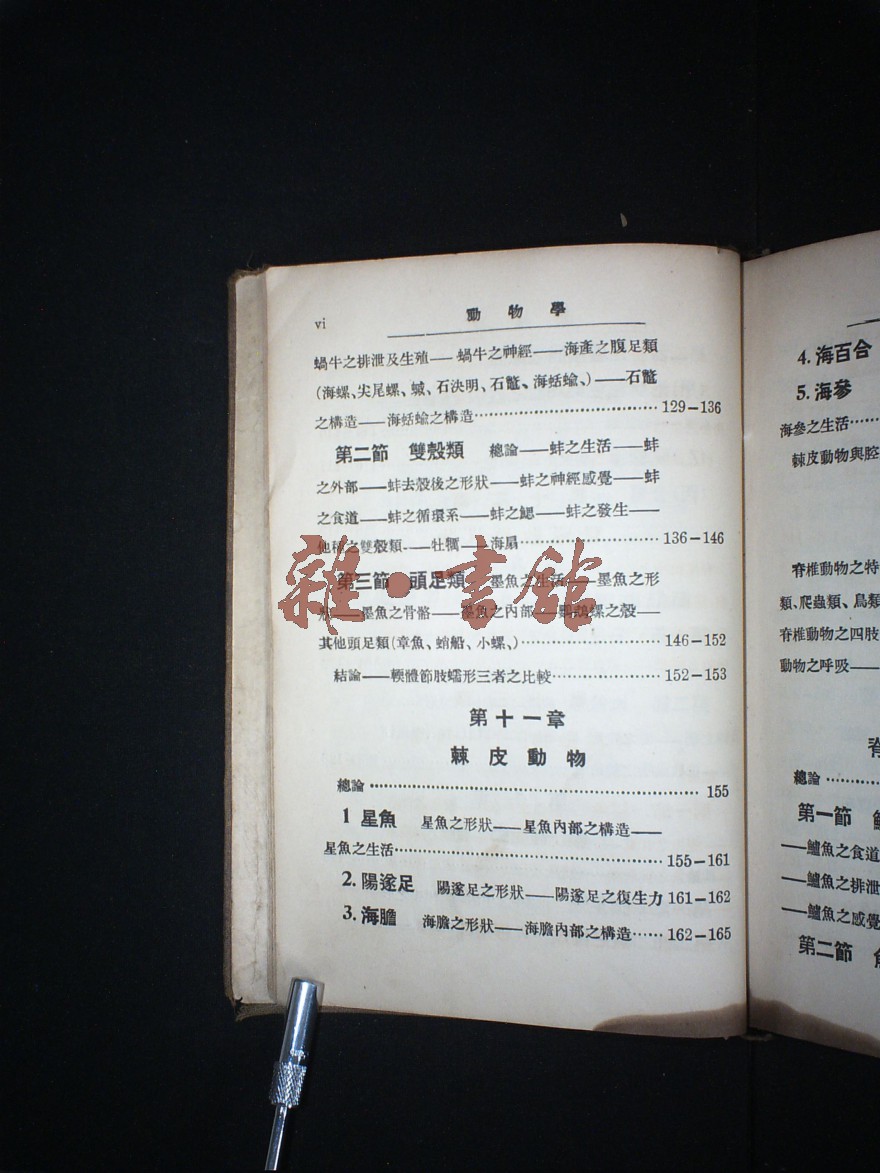 vi
動物學
蝸牛之排泄及生殖——蝸牛之神經——海產之腹足類
(海螺、尖尾螺、蝛、石決明、石鼈、海蛞蝓、)——石鼈
之構造——海蛞蝓之構造……………………………129—136
第二節 雙殼類 總論——蚌之生活——蚌
之外部——蚌去殼後之形狀——蚌之神經感覺——蚌
之食道——蚌之循環系——蚌之鰓——蚌之發生——
他種之雙殼類——牡蠣——海扇……………………136—146
第三節 頭足類 墨魚之生活——墨魚之形
狀——墨魚之骨骼——墨魚之內部——鸚鵡螺之殼——
其他頭足類(章魚、蛸船、小螺、)……………………146—152
結論——輭體節肢蠕形三者之比較…………………152—153
第十一章
棘皮動物
總論……………………………………………………155
1 星魚 星魚之形狀——星魚內部之構造——
星魚之生活……………………………………………155—161
2. 陽遂足 陽遂足之形狀——陽遂足之復生力 161—162
3. 海膽 海膽之形狀——海膽內部之構造……162—165
4. 海百合
5. 海參
海參之生活……
棘皮動物與腔
脊椎動物之特
類、爬蟲類、鳥類
脊椎動物之四肢
動物之呼吸——
脊
總論……
第一節
——鱸魚之食道
——鱸魚之排泄
——鱸魚之感覺
第二節
雜·書館